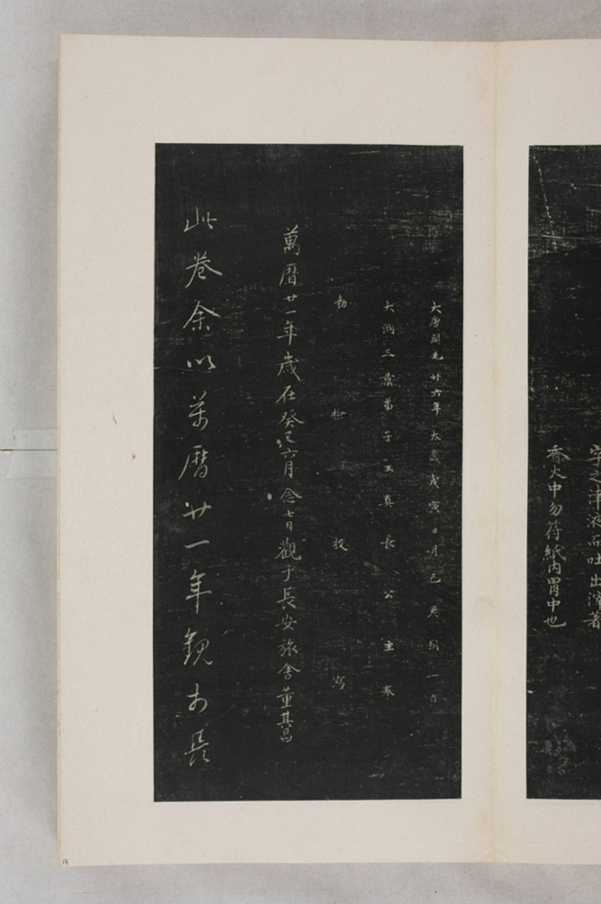 字之津液而吐出溜著
香火中勿符紙內胃中也
大唐開元廿六年太歲戊寅二月己亥朔一日
大洞三景弟子玉真長公主奉
勅檢校寫
萬曆廿一年歲在癸巳六月念七日觀于長安旅舍董其昌
此卷余以萬曆廿一年觀於長